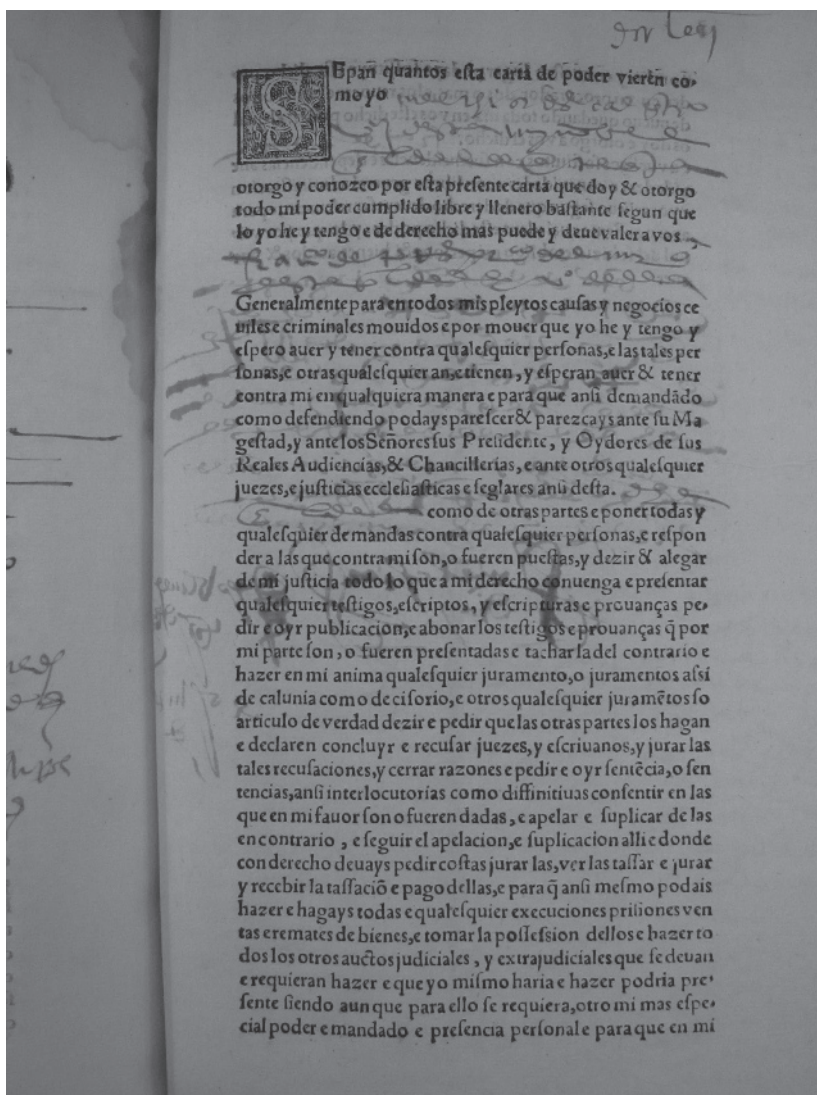 SEpan quantos esta carta de poder vieren co-
mo yo
otorgo y conozco por esta presente carta que doy & otorgo
todo mi poder cumplido libre y llenero bastante segun que
lo yo he y tengo e de derecho mas puede y deue valer a vos,
Generalmente para en todos mis pleytos causas y negocios ce
uiles e criminales mouidos e por mouer que yo he y tengo y
espero auer y tener contra qualesquier personas, e las tales per
sonas, e otras qualesquier an, e tienen, y esperan auer & tener
contra mi en qualquiera manera e para que ansi demandãdo
como defendiendo podays parescer & parezcays ante su Ma
gestad, y ante los Señores sus Presidente, y Oydores de sus
Reales Audiencias, & Chancillerias, e ante otros qualesquier
juezes, e justicias ecclesiasticas e seglares ansi desta.
como de otras partes e poner todas y
qualesquier demandas contra qualesquier personas, e respon
der a las que contra mi son, o fueren puestas, y dezir & alegar
de mi justicia todo lo que a mi derecho conuenga e presentar
qualesquier testigos, escriptos, y escripturas e prouanças pe-
dir e oyr publicacion, e abonar los testigos e prouanças q̃ por
mi parte son, o fueren presentadas e tachar la del contrario e
hazer en mi anima qualesquier juramento, o juramentos assi
de calunia como decisorio, e otros qualesquier juramẽtos so
articulo de verdad dezir e pedir que las otras partes los hagan
e declaren concluyr e recusar juezes, y escriuanos, y jurar las
tales recusaciones, y cerrar razones e pedir e oyr sentẽcia, o sen
tencias, ansi interlocutorias como diffinitiuas consentir en las
que en mi fauor son o fueren dadas, e apelar e suplicar de las
en contrario, e seguir el apelacion, e suplicacion alli e donde
con derecho deuays pedir costas jurar las, ver las tassar e jurar
y recebir la tassaciõ e pago dellas, e para q̃ ansi mesmo podais
hazer e hagays todas e qualesquier execuciones prisiones ven
tas e remates de bienes, e tomar la possession dellos e hazer to
dos los otros auctos judiciales, y extrajudiciales que se deuan
e requieran hazer e que yo mismo haria e hazer podria pre-
sente siendo aun que para ello se requiera, otro mi mas espe-
cial poder e mandado e presencia personal e para que en mi